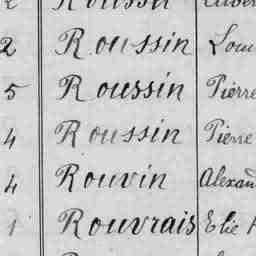 2 Roussin
5 Roussin Pierre
4 Roussin Pierre
4 Rouvin
1 Rouvrais Elie